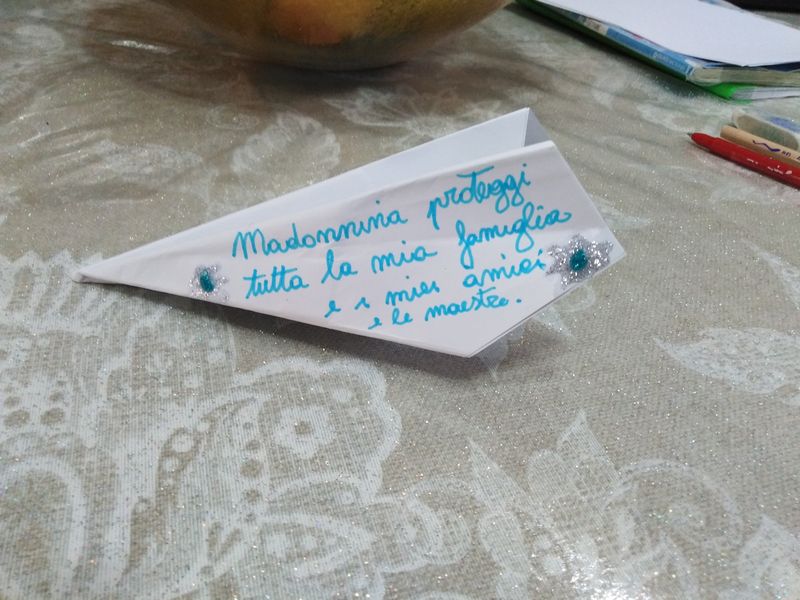 Madonnina proteggi
tutta la mia famiglia
e i miei amici
e le maestre.